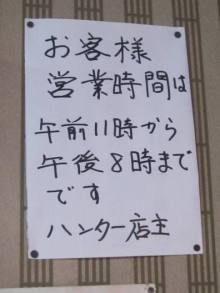 お客様
営業時間は
午前11時から
午後8時まで
です
ハンター店主